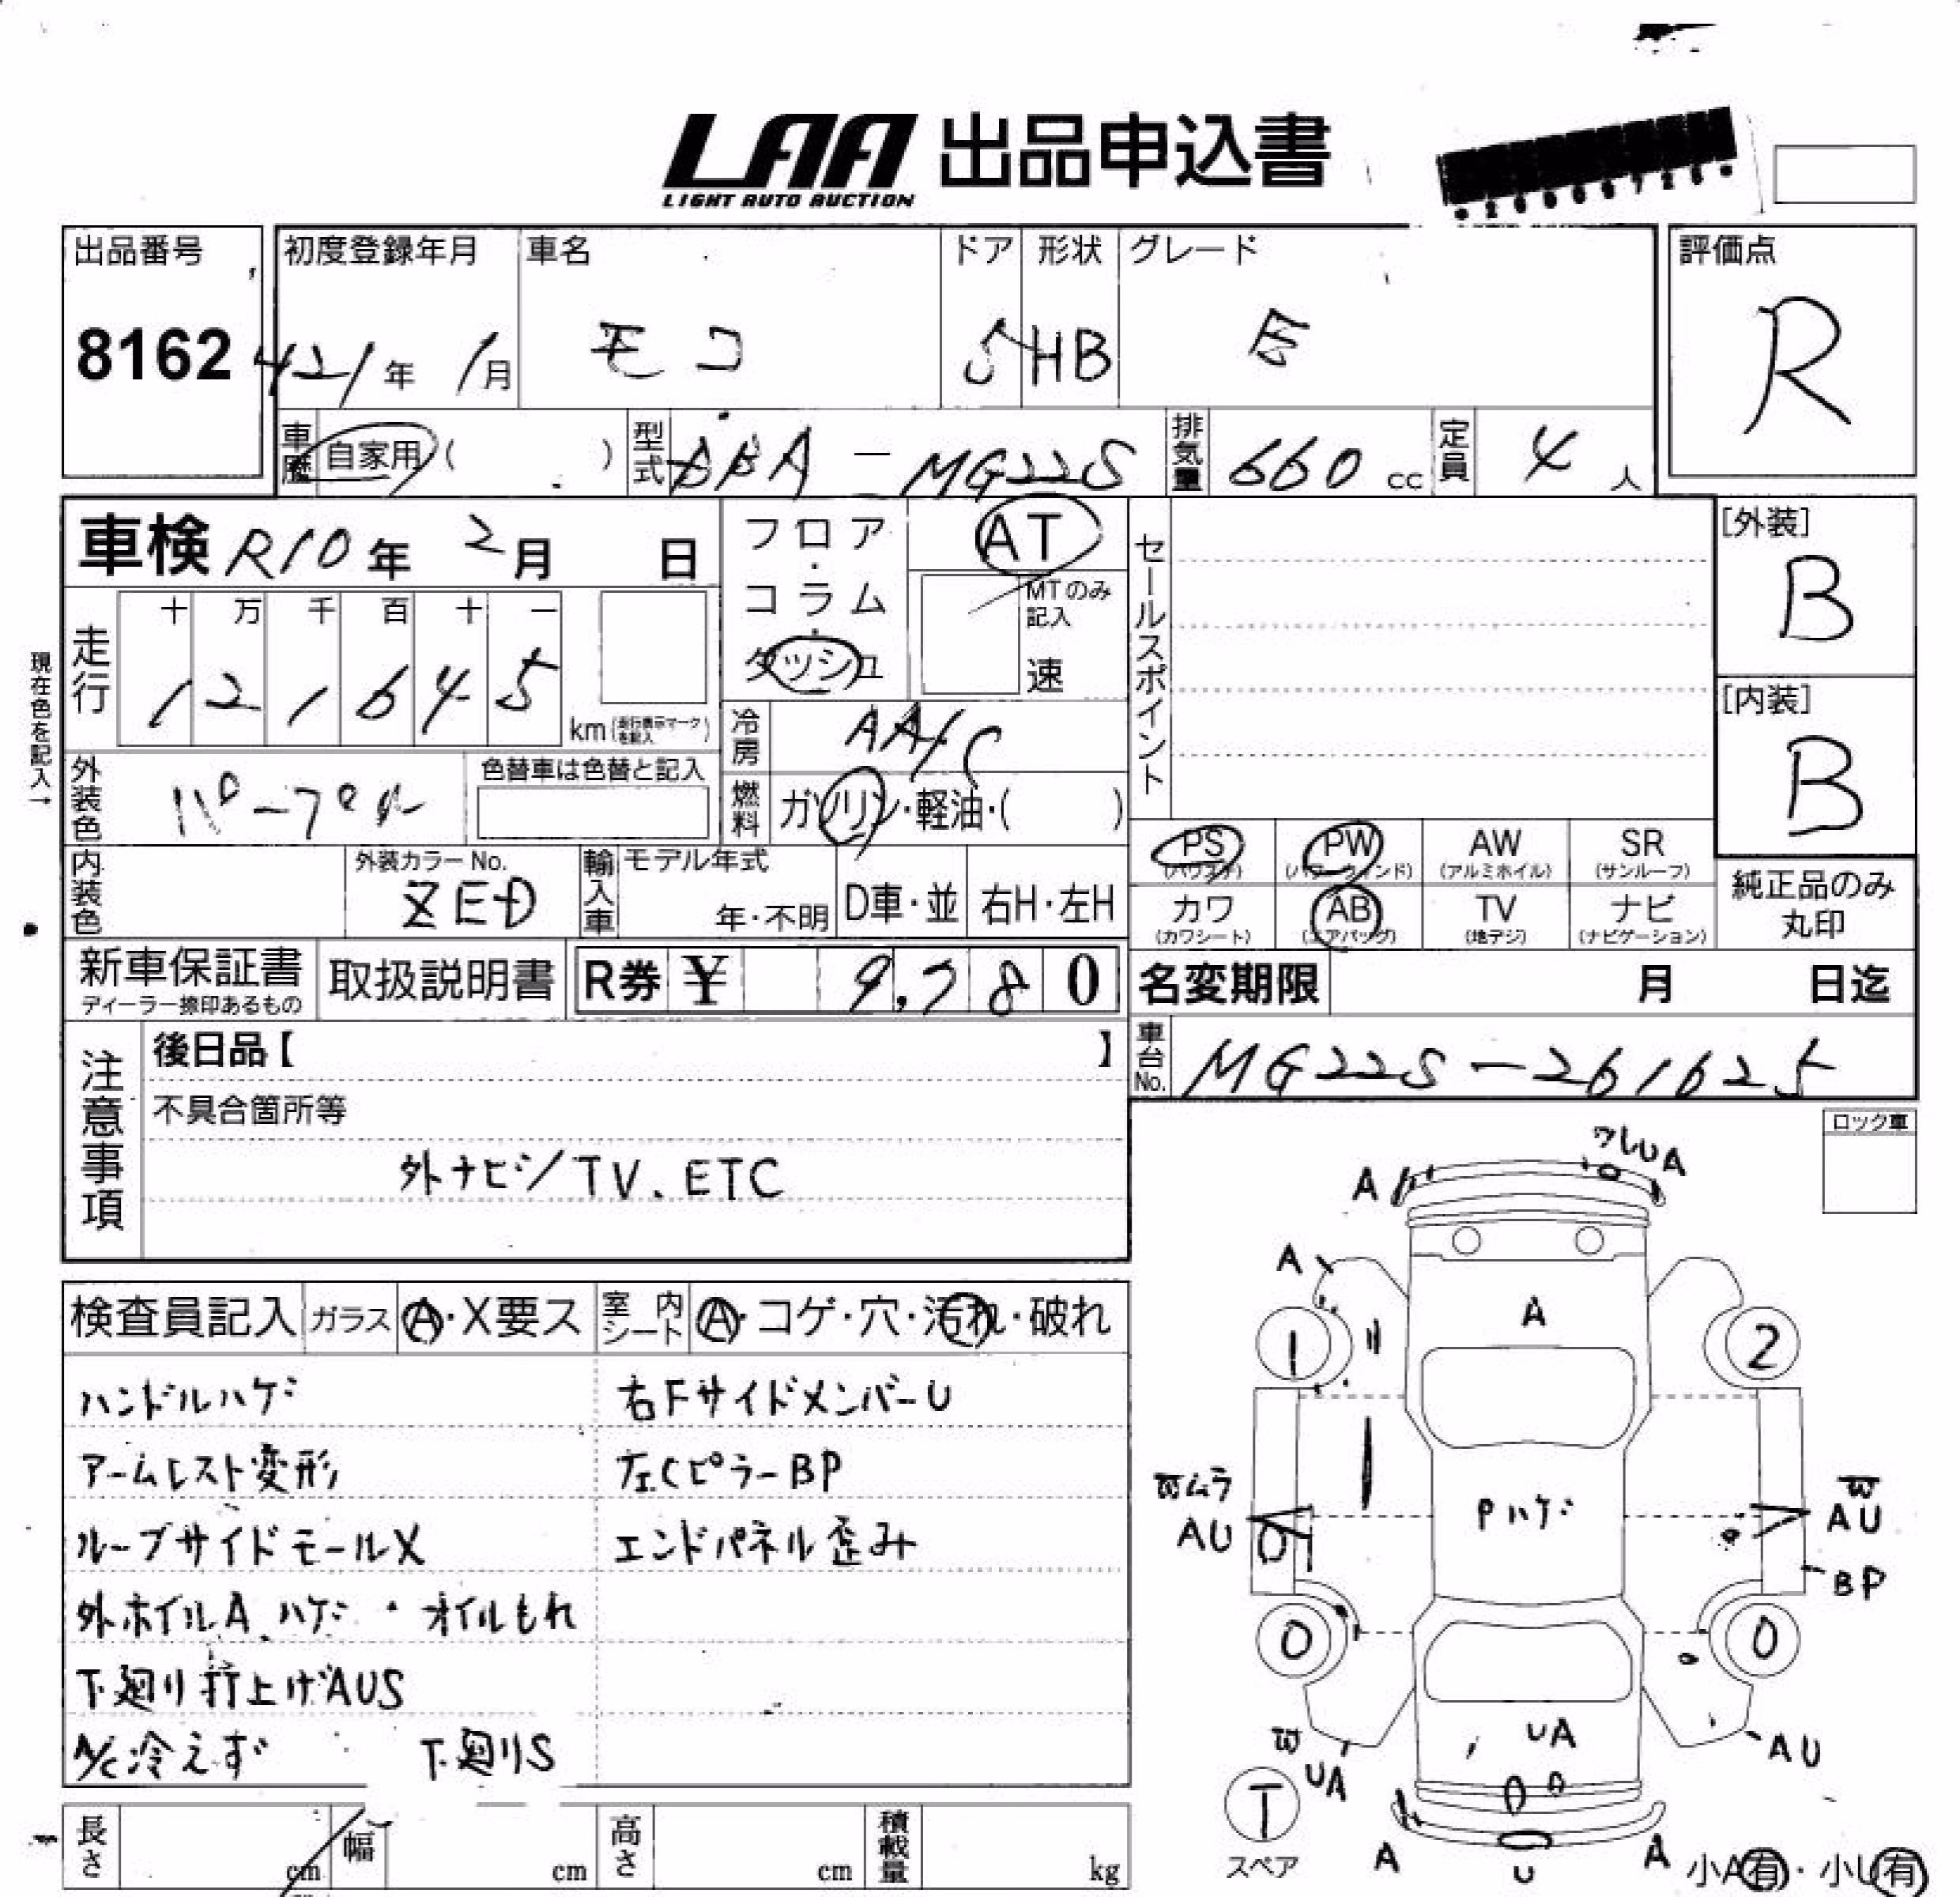 LAA 出品申込書
LIGHT AUTO AUCTION
出品番号
8162
初度登録年月
H21年 1月
車名
モコ
ドア
5
形状
HB
グレード
E
評価点
R
車歴
自家用 ( )
型式
DBA - MG22S
排気量
660 cc
定員
4 人
車検 R10年 2月 日
フロア・コラム・ダッシュ
AT
MTのみ記入
速
セールスポイント
[外装]
B
[内装]
B
現在色を記入→
走行
十 万 千 百 十 一
1 2 1 6 4 5
km(走行表示マークを記入)
冷房
AA/C
外装色
パープル
色替車は色替と記入
燃料
ガソリン・軽油・( )
内装色
外装カラーNo.
ZED
輸入車
モデル年式
年・不明
D車・並
右H・左H
PS (パワステ)
PW (パワーウインド)
AW (アルミホイル)
SR (サンルーフ)
カワ (カワシート)
AB (エアバッグ)
TV (地デジ)
ナビ (ナビゲーション)
純正品のみ丸印
新車保証書
ディーラー捺印あるもの
取扱説明書
R券 ¥ 9,780
名変期限 月 日迄
車台No.
MG22S-261625
注意事項
後日品【 】
不具合箇所等
外ナビ/TV.ETC
ロック車
検査員記入
ガラス
A・X要ス
室内シート
A・コゲ・穴・汚れ・破れ
ハンドルハゲ
右FサイドメンバーU
アームレスト変形
左CピラーBP
ルーフサイドモールX
エンドパネル歪み
外ホイルA ハゲ ・オイルもれ
下廻り打上げAUS
A/C冷えず 下廻りS
長さ cm
幅 cm
高さ cm
積載量 kg
ワレUA
A
A
A
1
2
Wムラ
AU
Pハゲ
W
AU
BP
0
0
W
UA
UA
AU
T
スペア
A
U
A
小A有・小U有